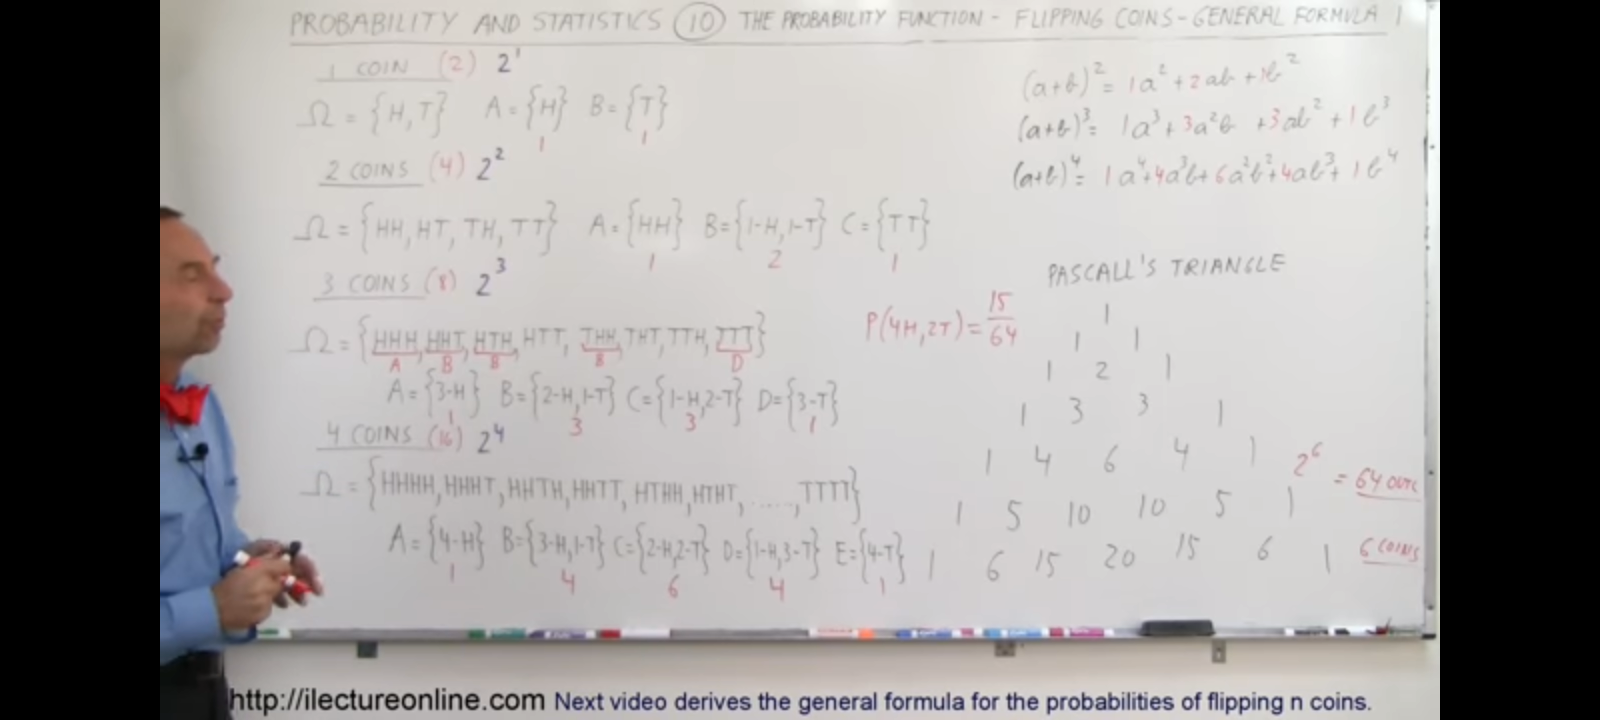 PROBABILITY AND STATISTICS (10) THE PROBABILITY FUNCTION - FLIPPING COINS - GENERAL FORMULA 1
1 COIN (2) 2¹
Ω = {H,T} A = {H} B = {T}
1 1
2 COINS (4) 2²
Ω = {HH, HT, TH, TT} A = {HH} B = {1-H, 1-T} C = {TT}
1 2 1
3 COINS (8) 2³
Ω = {HHH, HHT, HTH, HTT, THH, THT, TTH, TTT}
A B B B D
A = {3-H} B = {2-H, 1-T} C = {1-H, 2-T} D = {3-T}
1 3 3 1
4 COINS (16) 2⁴
Ω = {HHHH, HHHT, HHTH, HHTT, HTHH, HTHT, ......, TTTT}
A = {4-H} B = {3-H, 1-T} C = {2-H, 2-T} D = {1-H, 3-T} E = {4-T}
1 4 6 4 1
(a+b)² = 1a² + 2ab + 1b²
(a+b)³ = 1a³ + 3a²b + 3ab² + 1b³
(a+b)⁴ = 1a⁴ + 4a³b + 6a²b² + 4ab³ + 1b⁴
P(4H, 2T) = 15/64
PASCALL'S TRIANGLE
1
1 1
1 2 1
1 3 3 1
1 4 6 4 1
2⁶ = 64
1 5 10 10 5 1
1 6 15 20 15 6 1 6 COINS
http://ilectureonline.com Next video derives the general formula for the probabilities of flipping n coins.